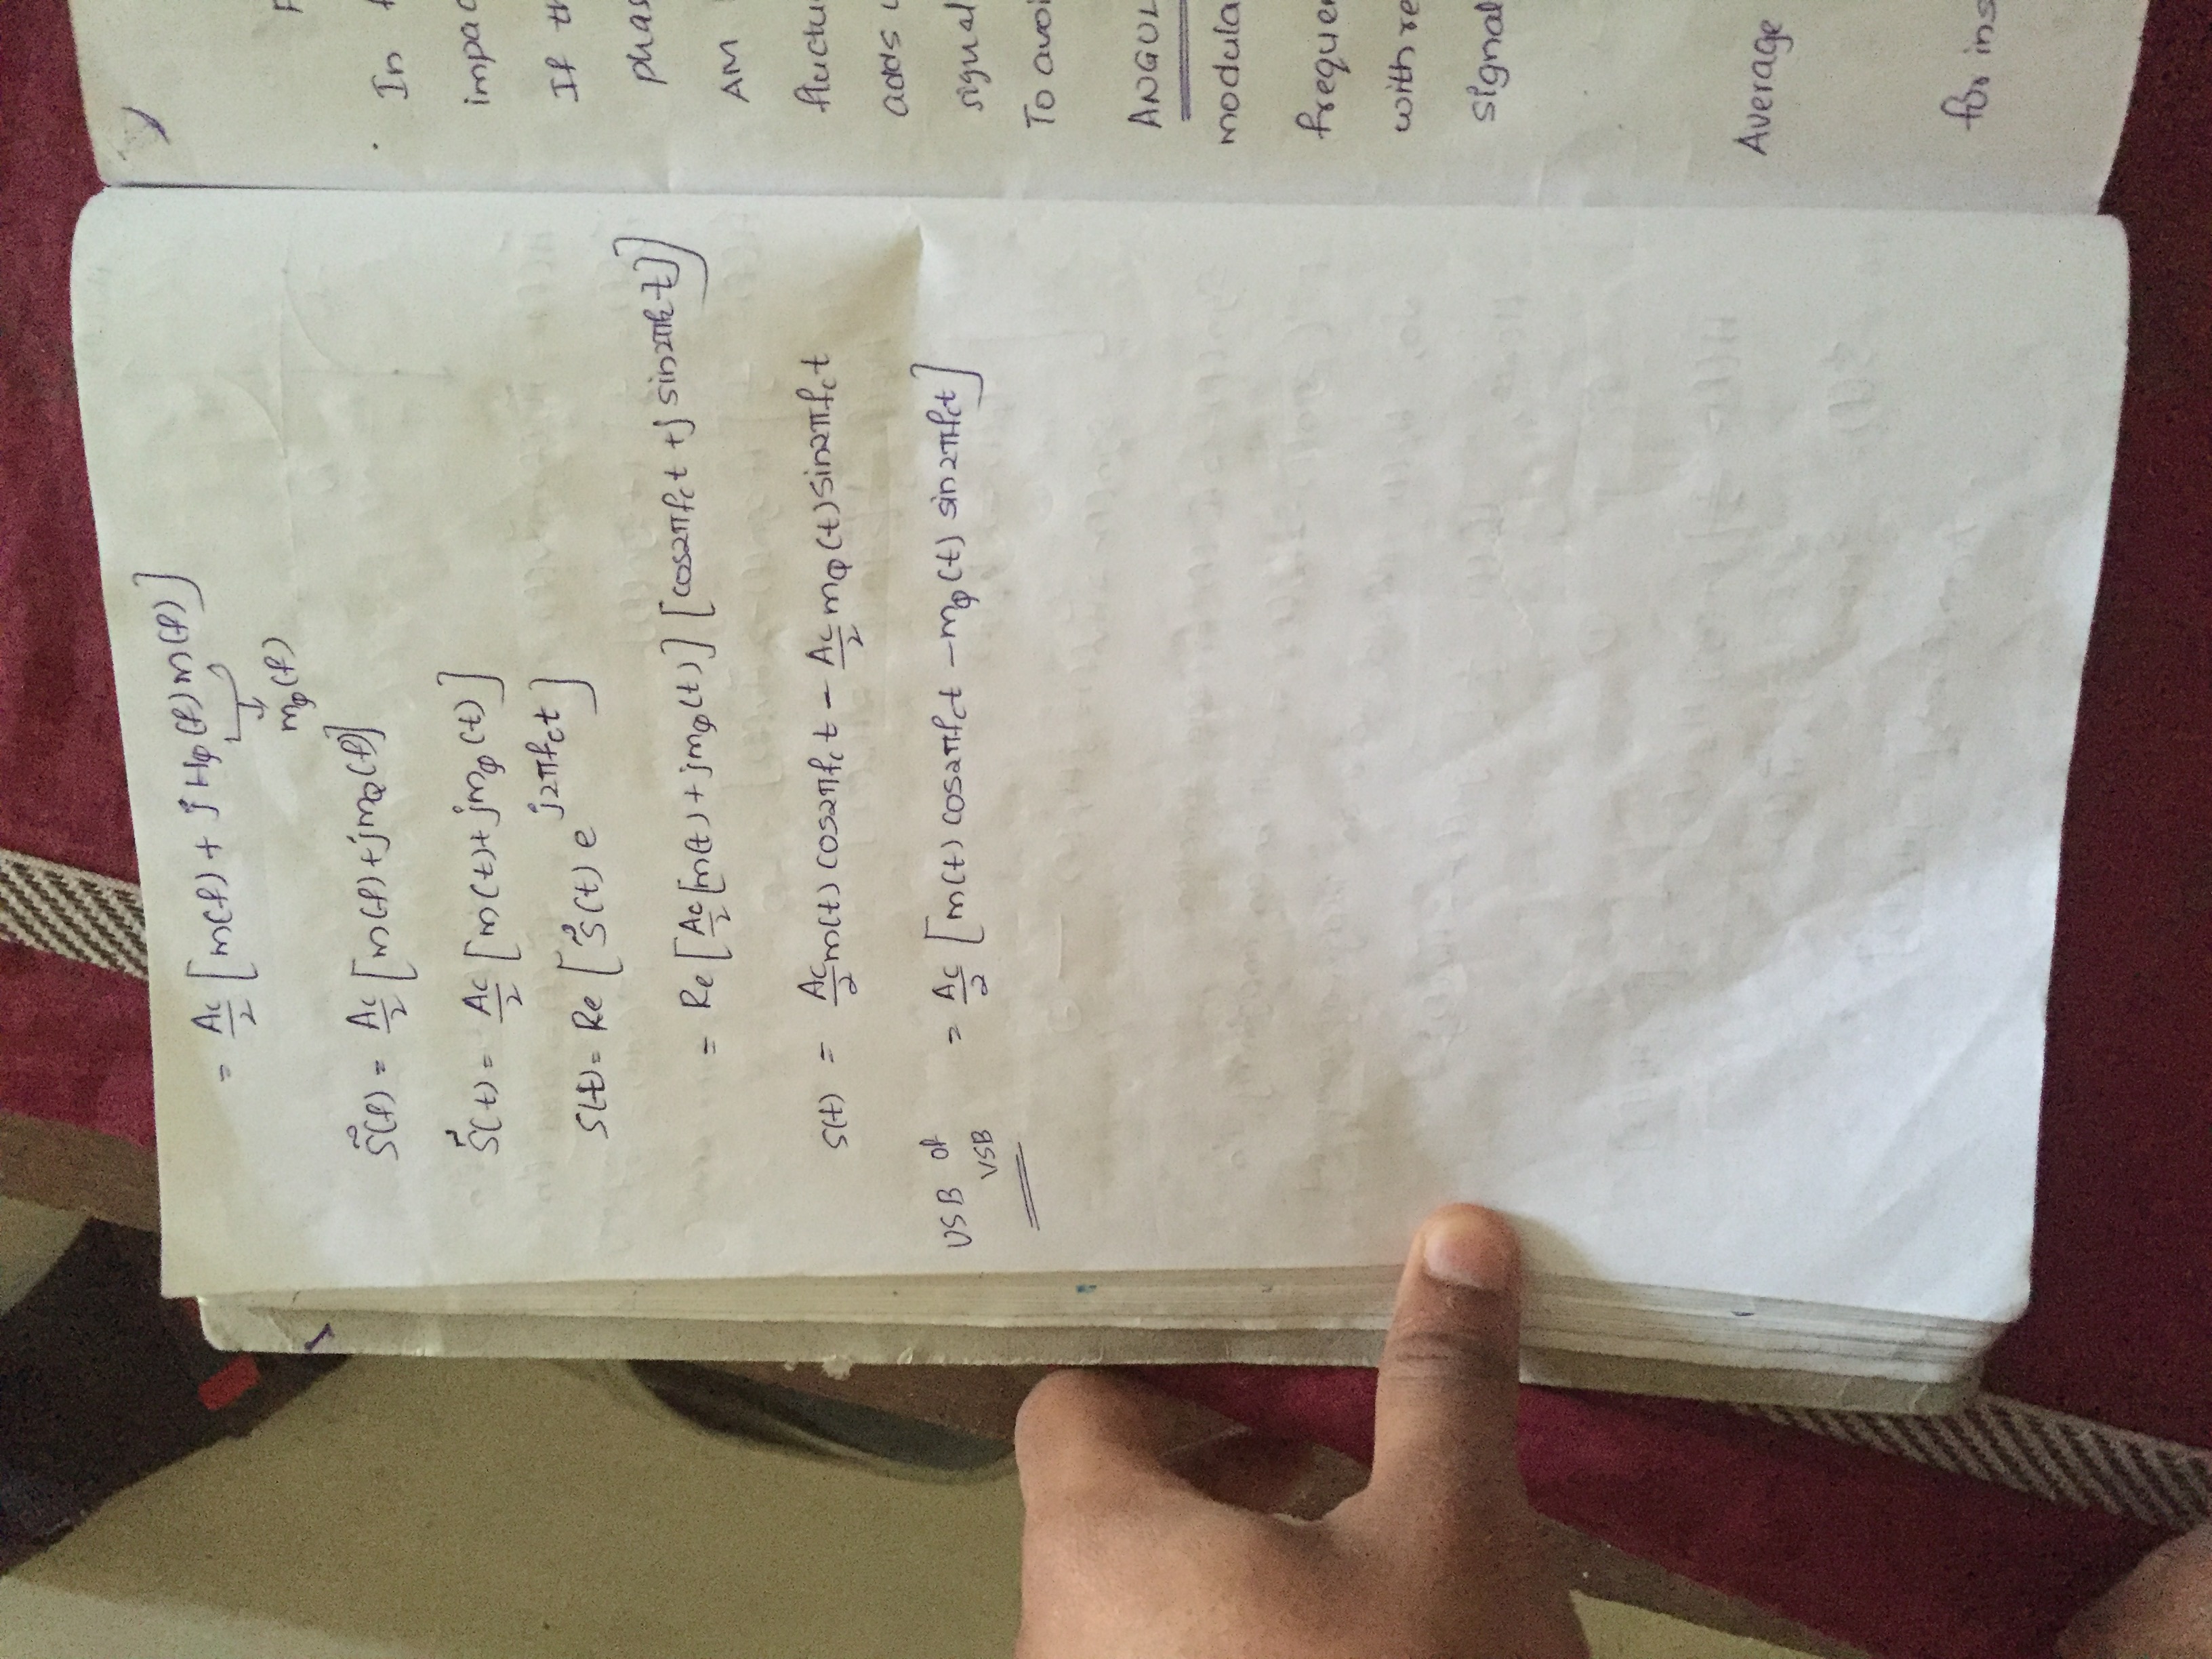 = Ac/2 [m(f) + j HQ(f) m(f)]
↓
mQ(f)
s̃(f) = Ac/2 [m(f) + jmQ(f)]
s̃(t) = Ac/2 [m(t) + jmQ(t)]
s(t) = Re [s̃(t) e^j2πfct]
= Re [Ac/2 [m(t) + jmQ(t)] [cos2πfct + j sin2πfct]]
s(t) = Ac/2 m(t) cos2πfct - Ac/2 mQ(t) sin2πfct
USB of = Ac/2 [m(t) cos2πfct - mQ(t) sin2πfct]
VSB
In
impac
If th
phas
AM
fluctu
adds
signal
To avoi
ANGUL
modula
frequen
with re
signal
Average
for ins